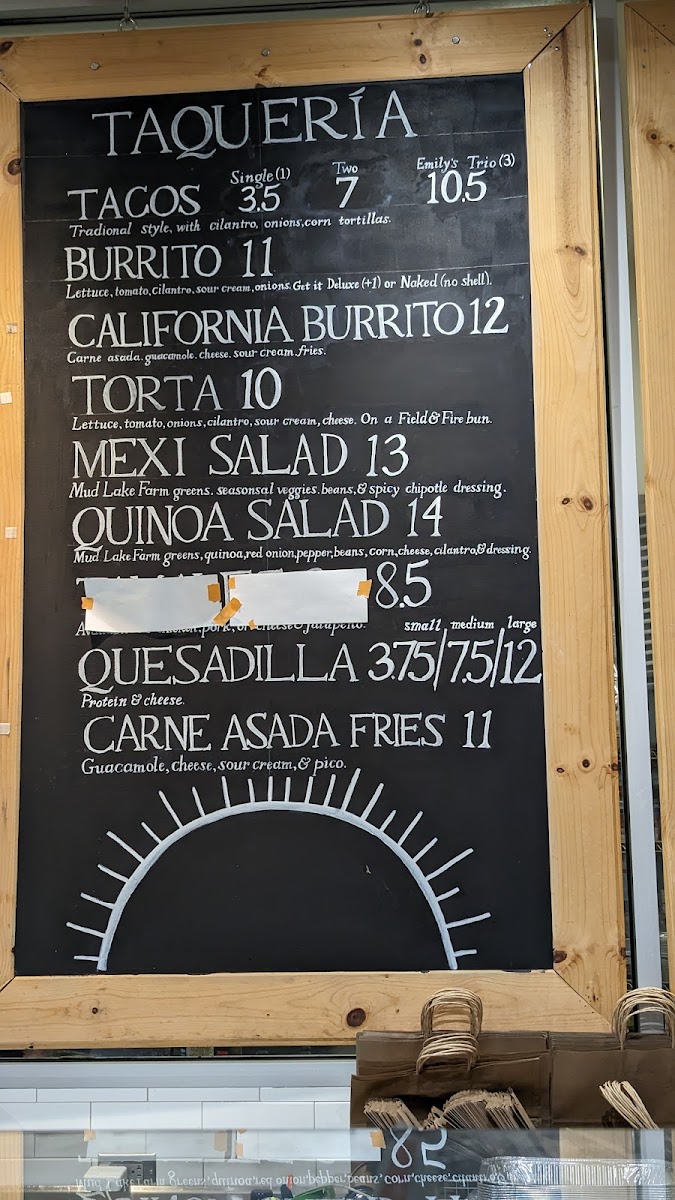 TAQUERÍA
Single (1) Two Emily's Trio (3)
TACOS 3.5 7 10.5
Tradional style, with cilantro, onions, corn tortillas.
BURRITO 11
Lettuce, tomato, cilantro, sour cream, onions. Get it Deluxe (+1) or Naked (no shell).
CALIFORNIA BURRITO 12
Carne asada. guacamole. cheese. sour cream. fries.
TORTA 10
Lettuce, tomato, onions, cilantro, sour cream, cheese. On a Field & Fire bun.
MEXI SALAD 13
Mud Lake Farm greens. seasonsal veggies. beans, & spicy chipotle dressing.
QUINOA SALAD 14
Mud Lake Farm greens, quinoa, red onion, pepper, beans, corn, cheese, cilantro & dressing.
8.5
pork, or cheese & jalapeño.
small medium large
QUESADILLA 3.75/7.5/12
Protein & cheese.
CARNE ASADA FRIES 11
Guacamole, cheese, sour cream, & pico.